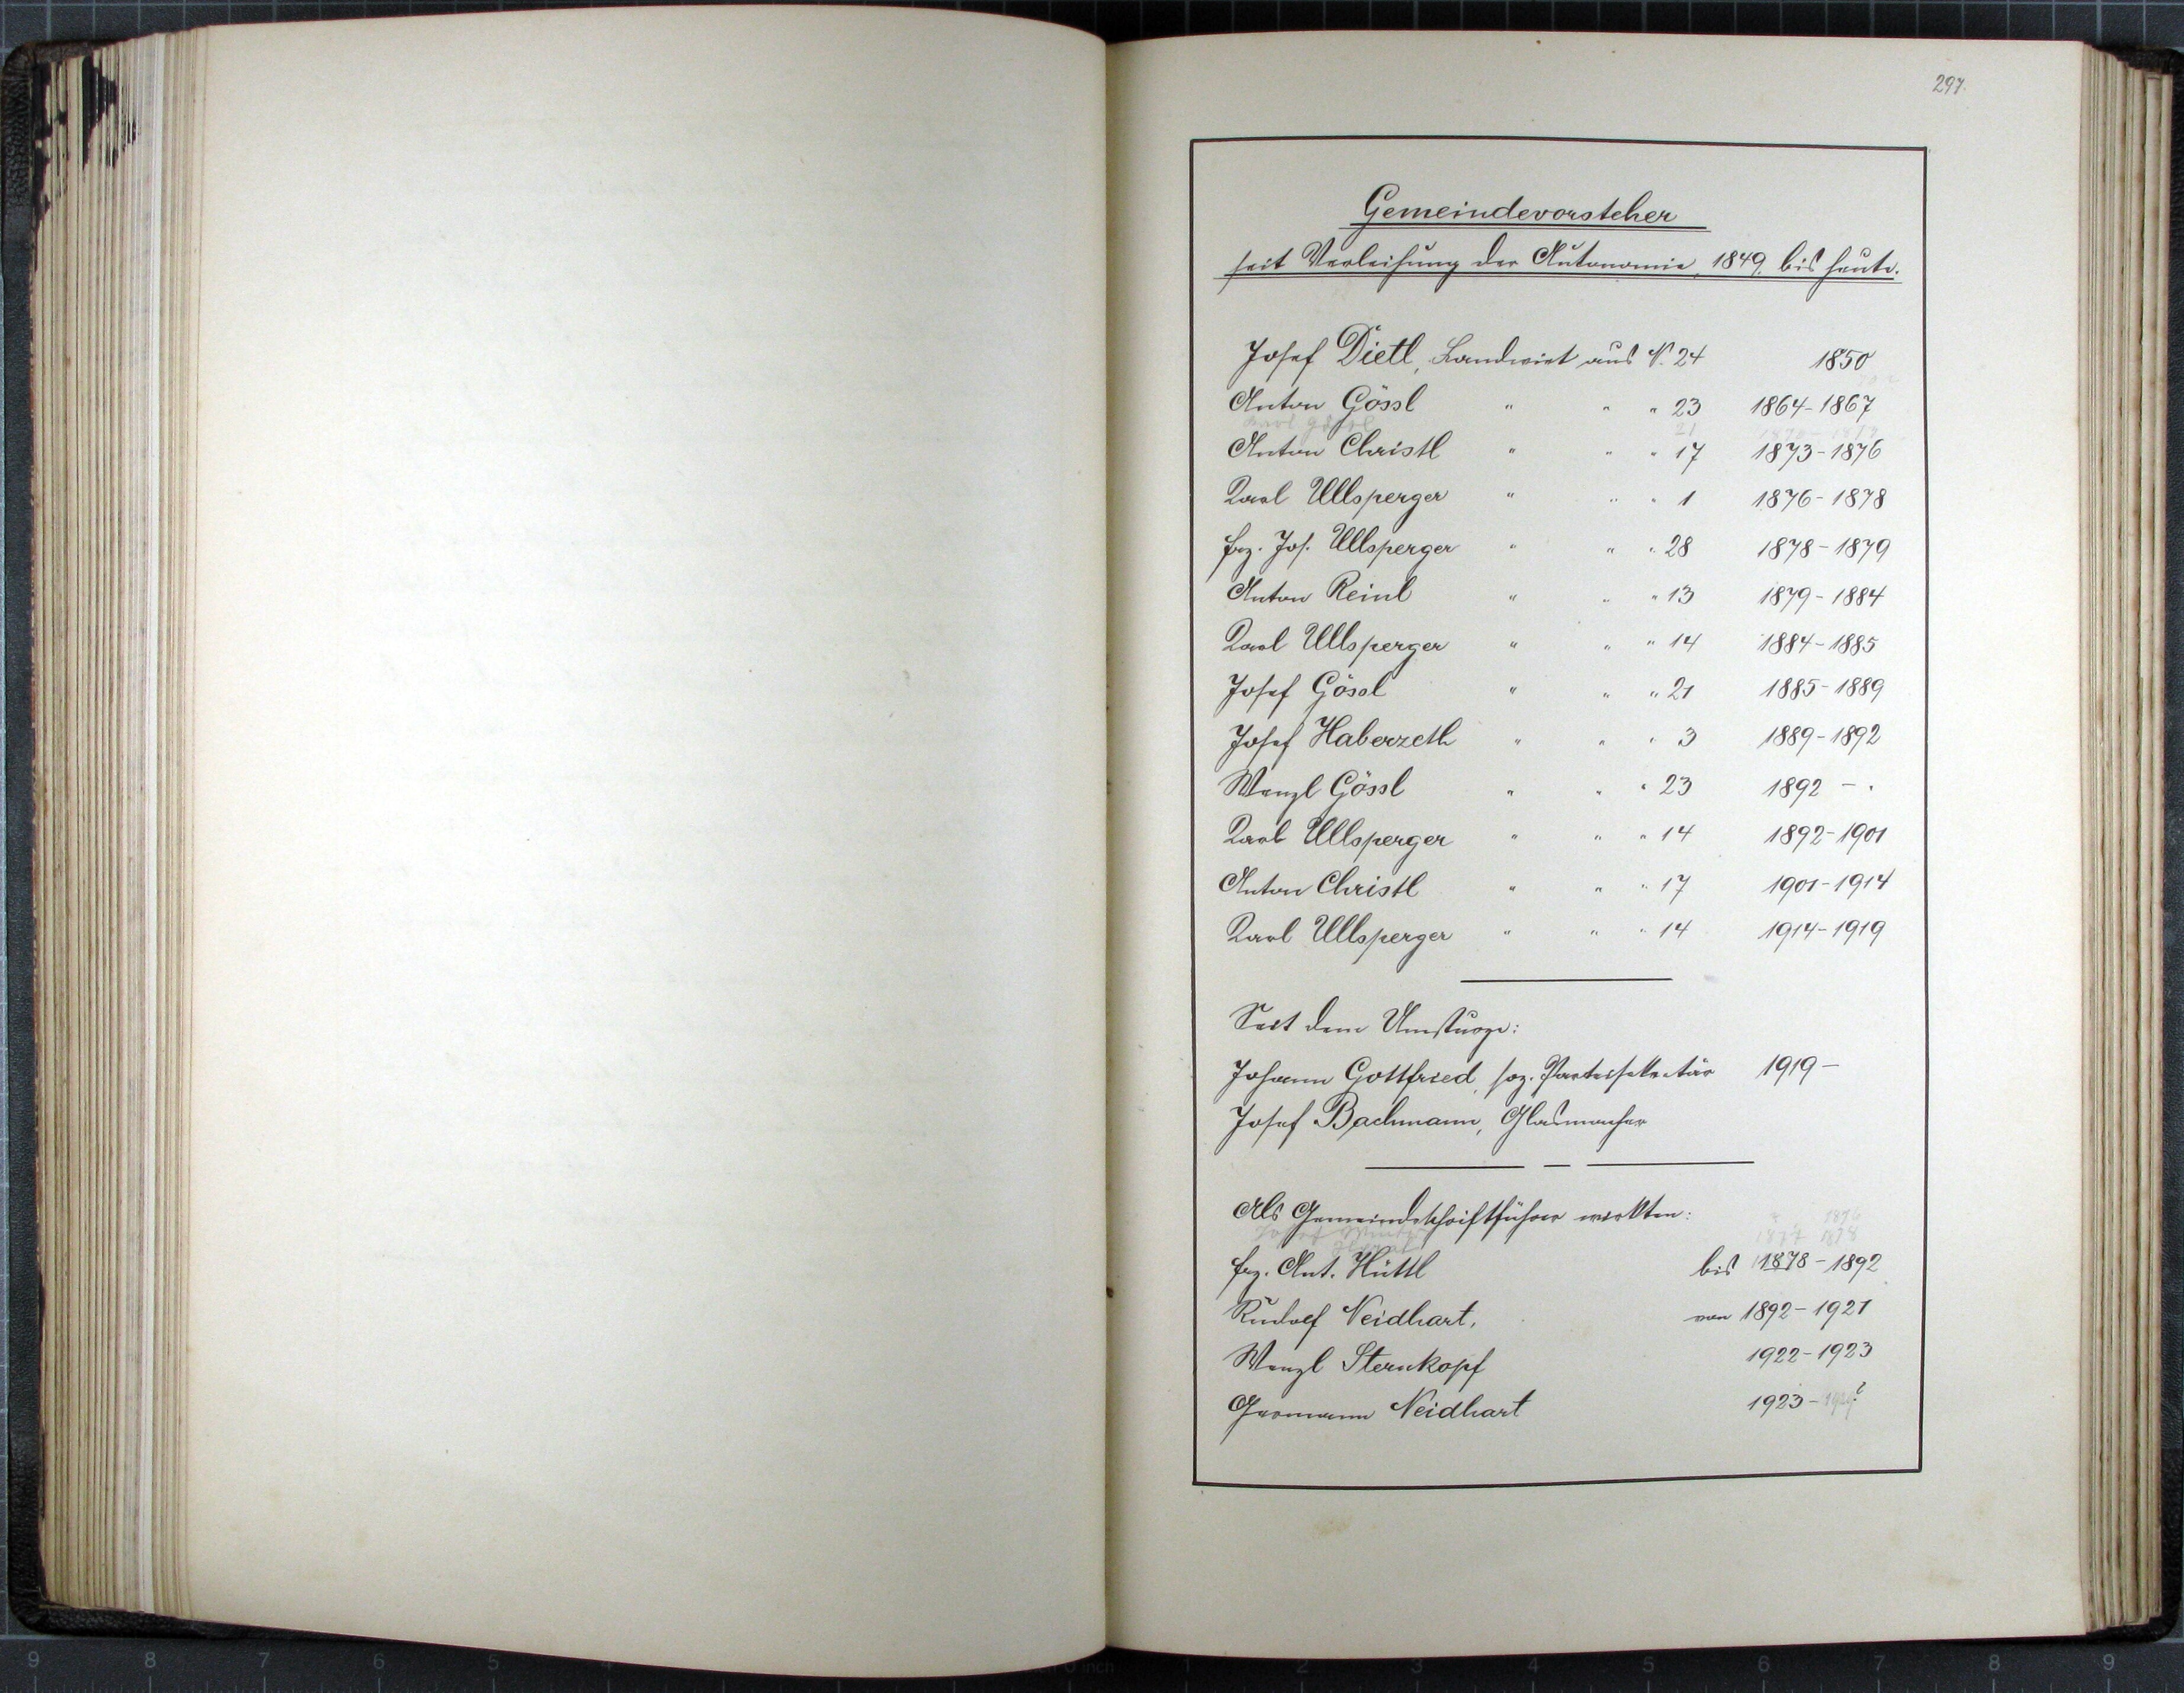 297.
Gemeindevorsteher
seit Verleihung der Autonomie, 1849, bis heute.
Josef Dietl, Landwirt aus N. 24 1850
Anton Gössl " " " 23 1864-1867
Karl Gössl 21
Anton Christl " " " 17 1873-1876
Karl Ullsperger " " " 1 1876-1878
Frz. Jos. Ullsperger " " " 28 1878-1879
Anton Reinl " " " 13 1879-1884
Karl Ullsperger " " " 14 1884-1885
Josef Gössl " " " 21 1885-1889
Josef Haberzeth " " " 3 1889-1892
Wenzl Gössl " " " 23 1892 - .
Karl Ullsperger " " " 14 1892-1901
Anton Christl " " " 17 1901-1914
Karl Ullsperger " " " 14 1914-1919
Seit dem Umsturze:
Johann Gottfried, soz. Parteisekretär 1919-
Josef Bachmann, Glasmacher
Als Gemeindeschriftführer wirkten:
1876
Josef 1877 1878
Frz. Ant. Hüttl bis 1878-1892
Rudolf Neidhart, von 1892-1921
Wenzl Sternkopf 1922-1923
Germann Neidhart 1923-
9 8 7 6 5 4 0 inch 1 2 3 4 5 6 7 8 9